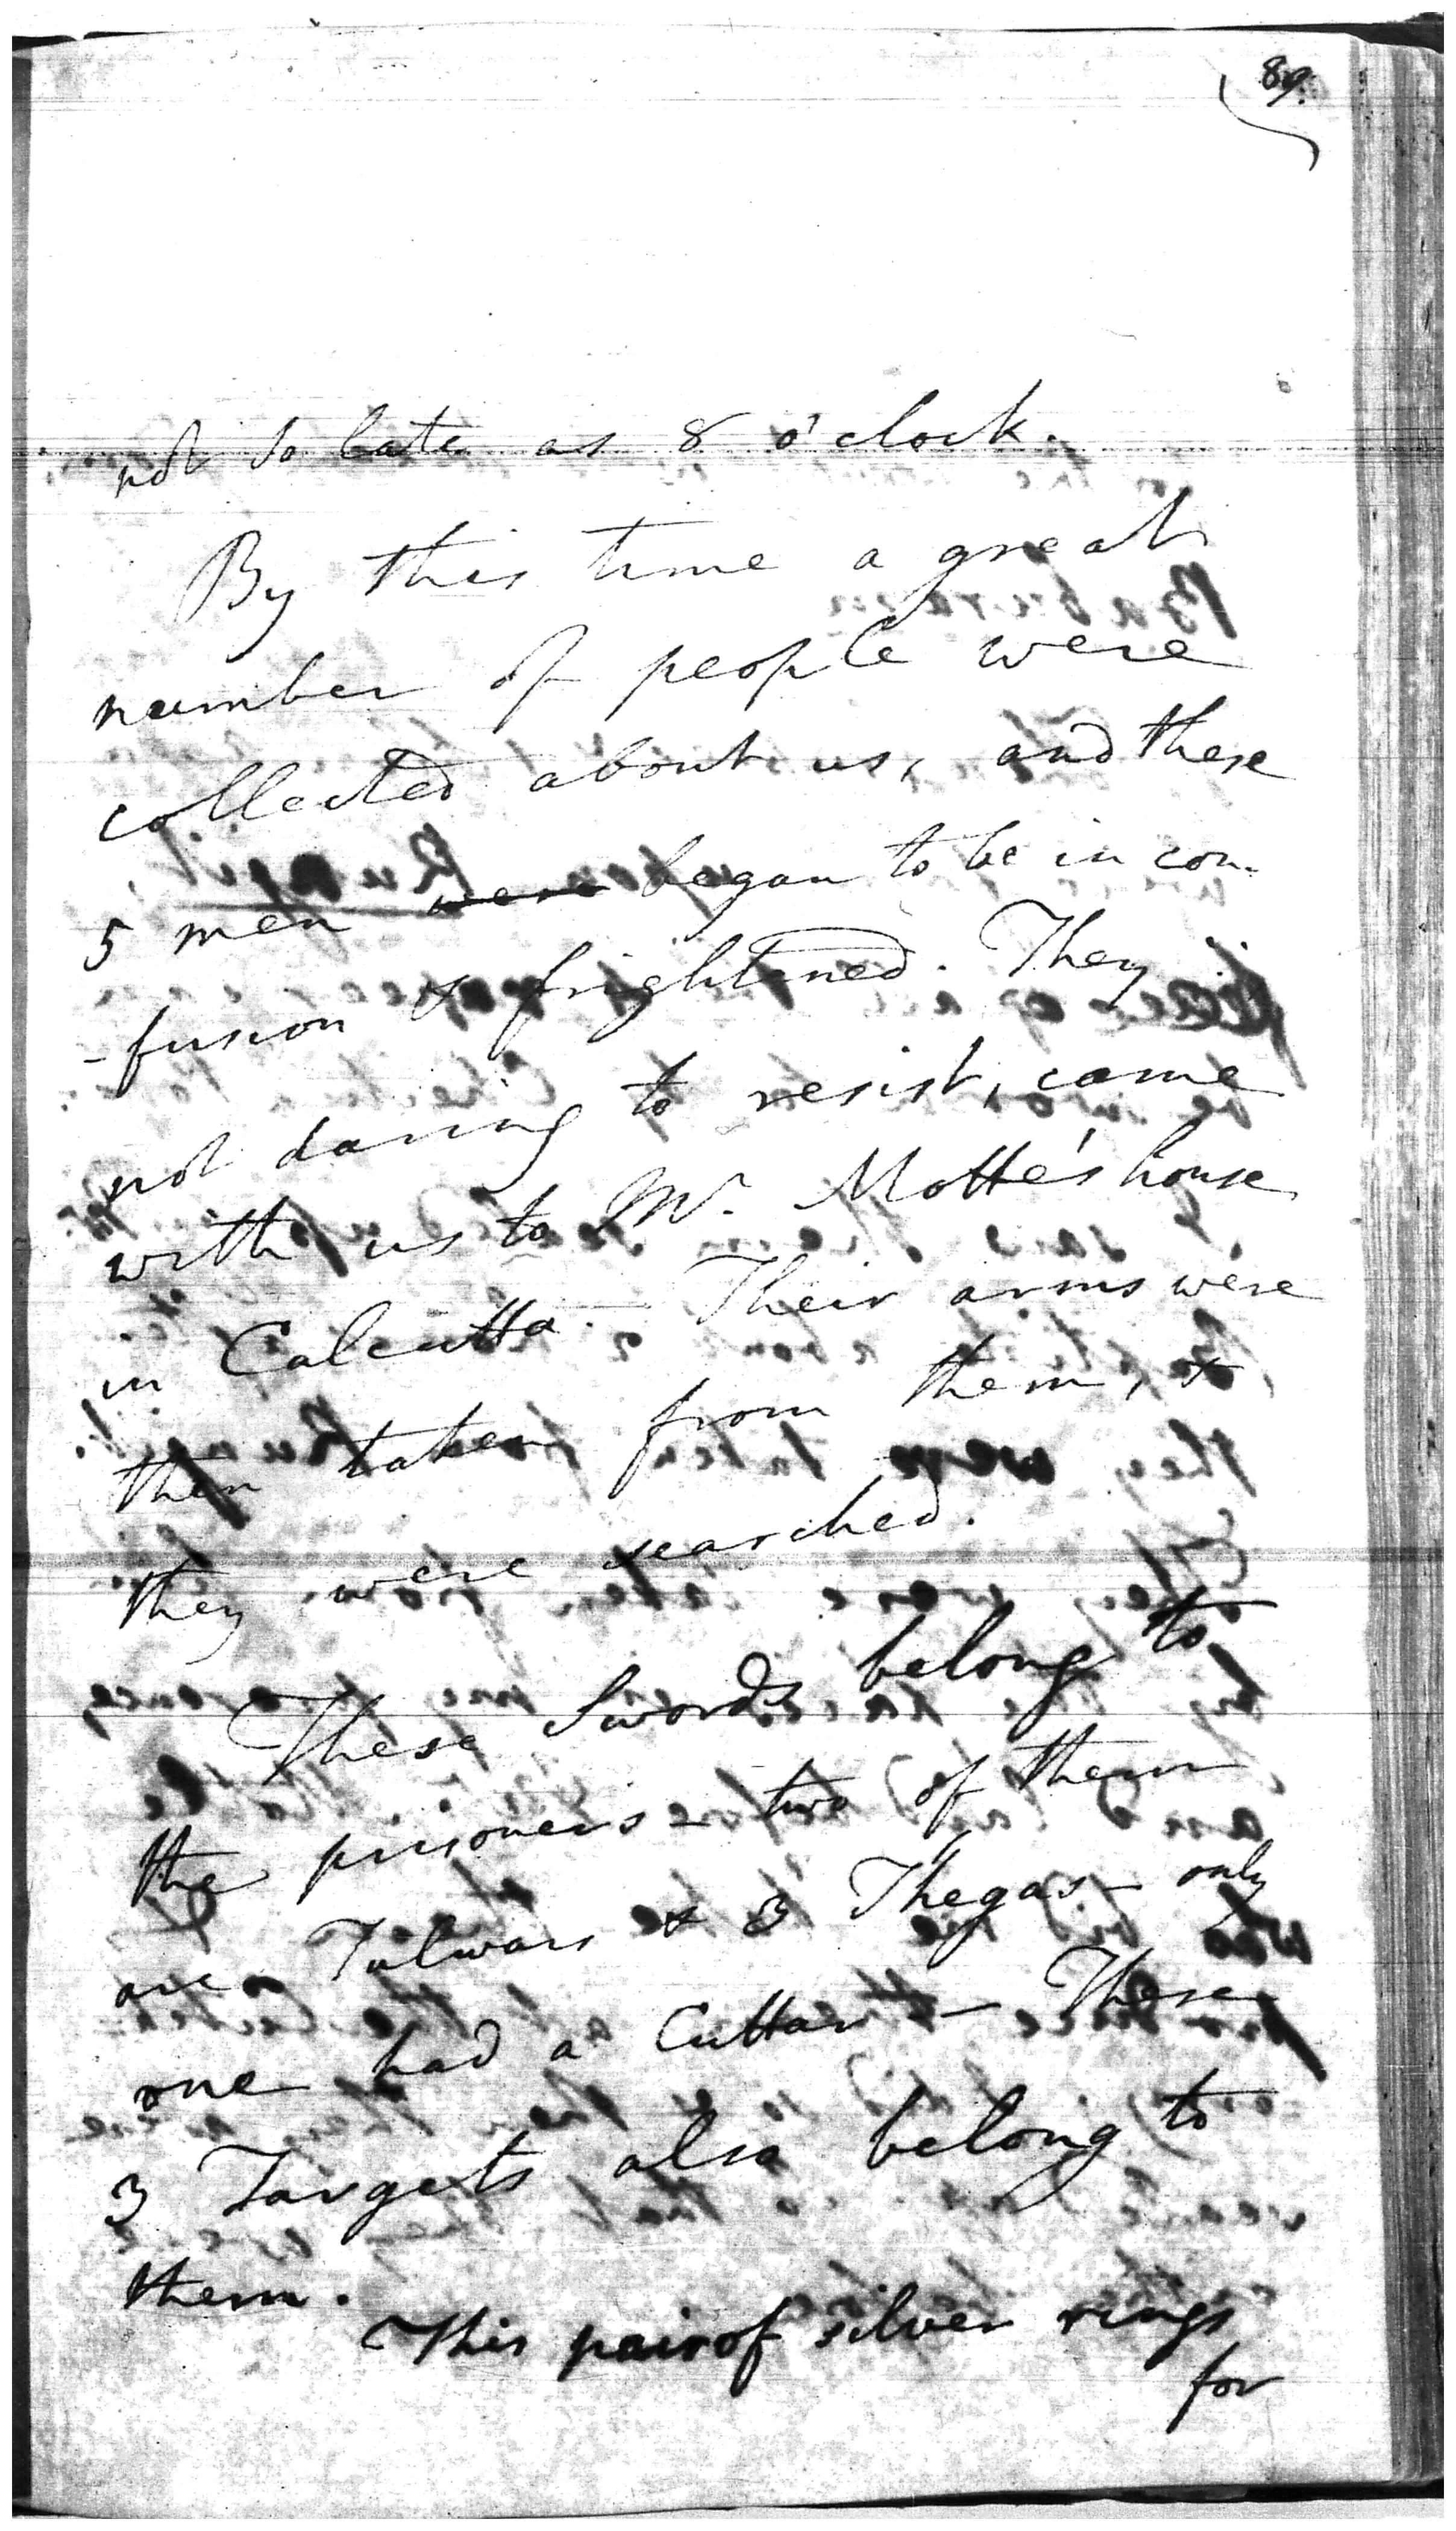 89.
not so late as 8 o'clock.
By this time a great
number of people were
collected about us, and these
5 men were began to be in con-
-fusion & frightened. They
not daring to resist, came
with us to Mr. Motte's house
in Calcutta. — Their arms were
then taken from them, &
they were searched.
These Swords belong to
the prisoners — two of them
are Tulwars & 3 Thegas — only
one had a Cuttar — These
3 Targets also belong to
them.
This pair of silver rings
for